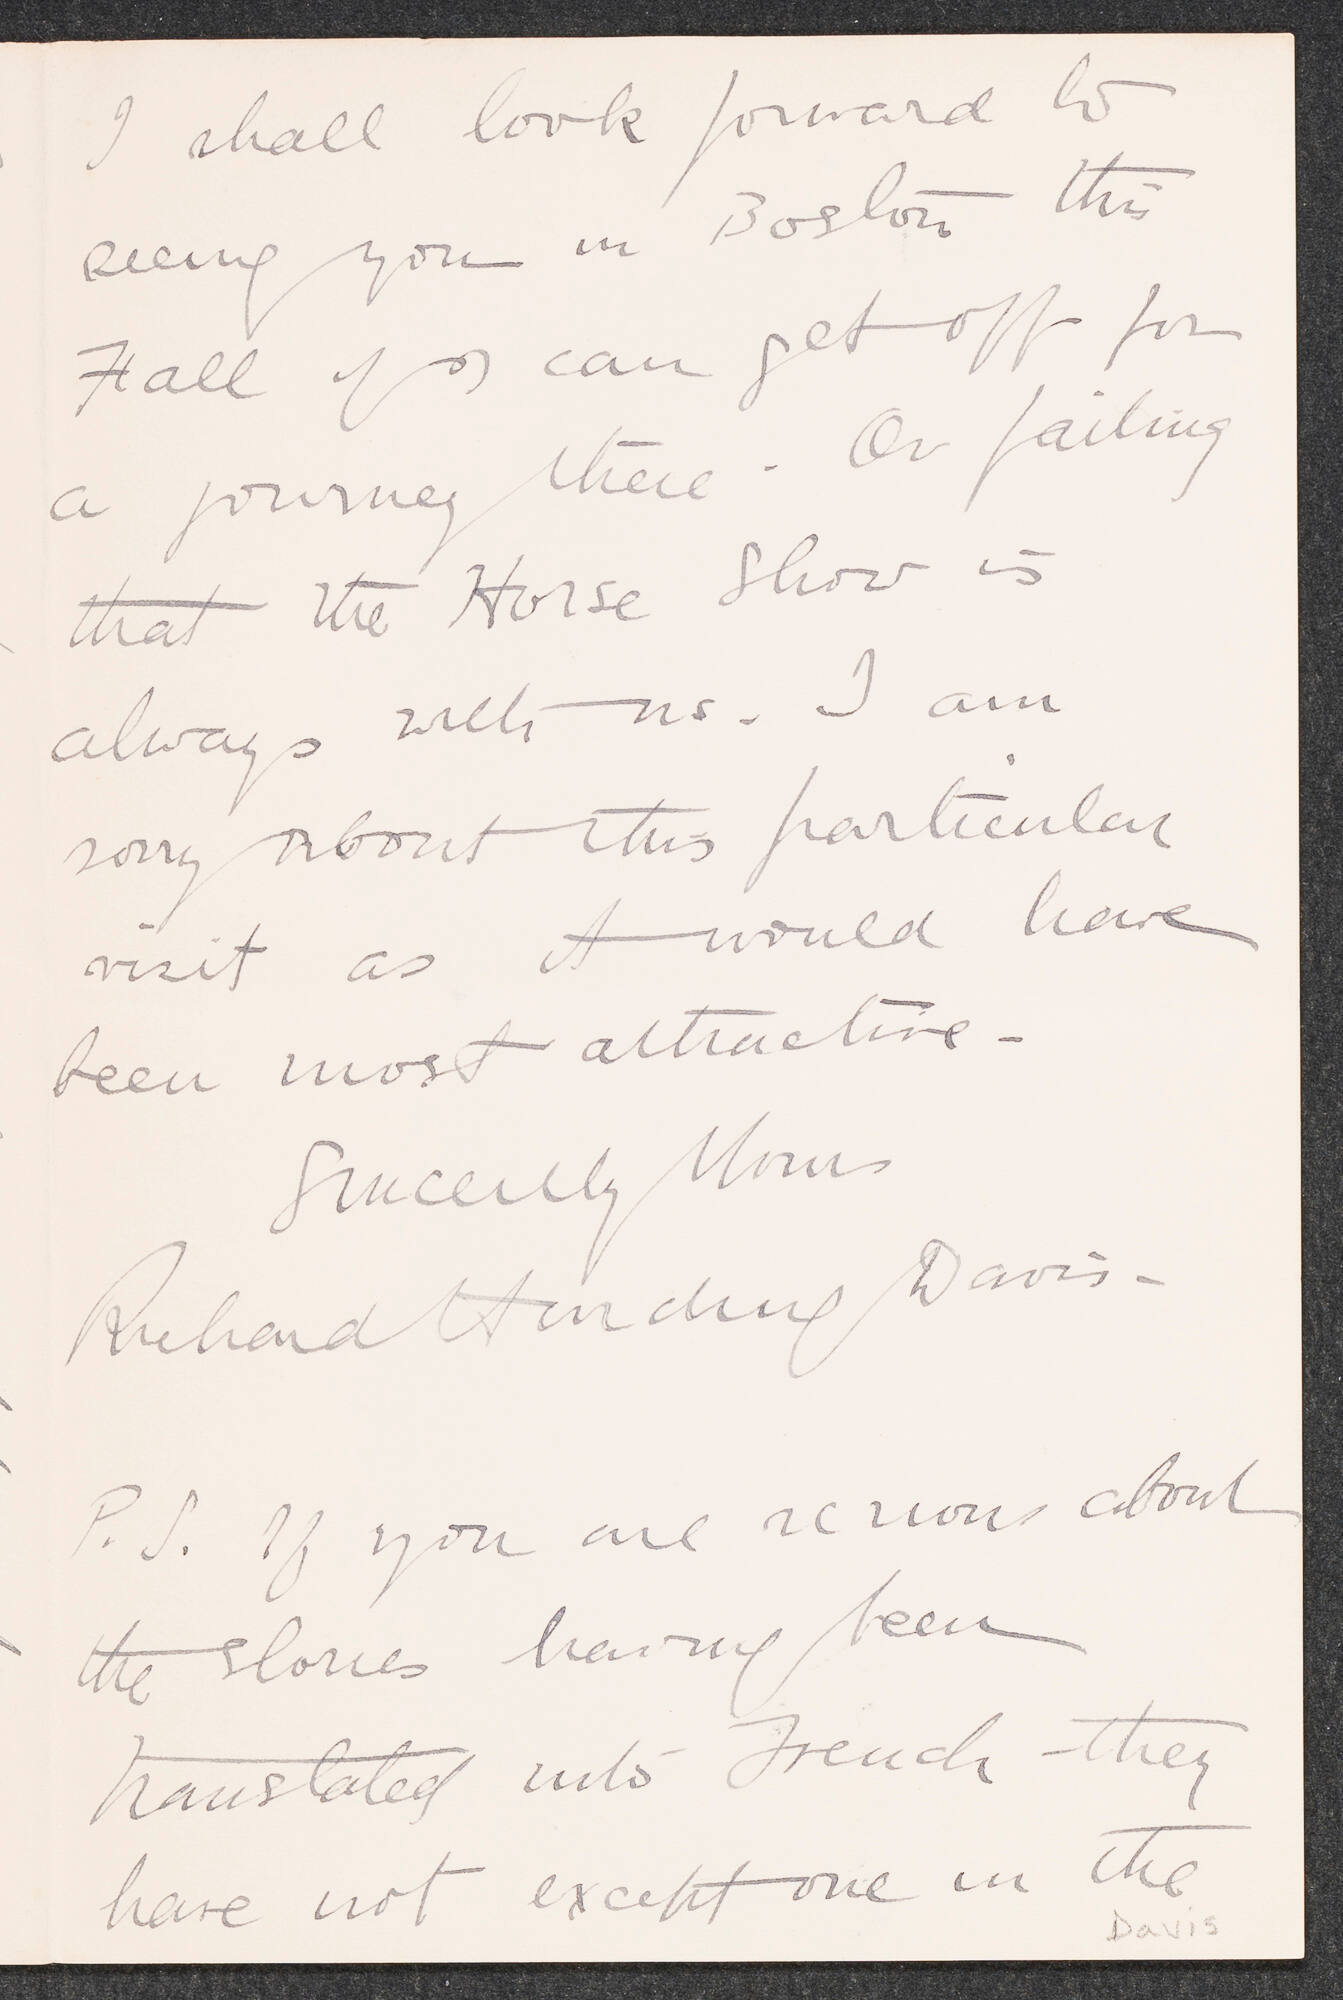 I shall look forward to
seeing you in Boston this
Fall if I can get off for
a journey there - Or failing
that the Horse Show is
always with us - I am
sorry about this particular
visit as it would have
been most attractive -
Sincerely Yours
Richard Harding Davis -
P.S. If you are serious about
the stories having been
translated into French - they
have not except one in the
Davis